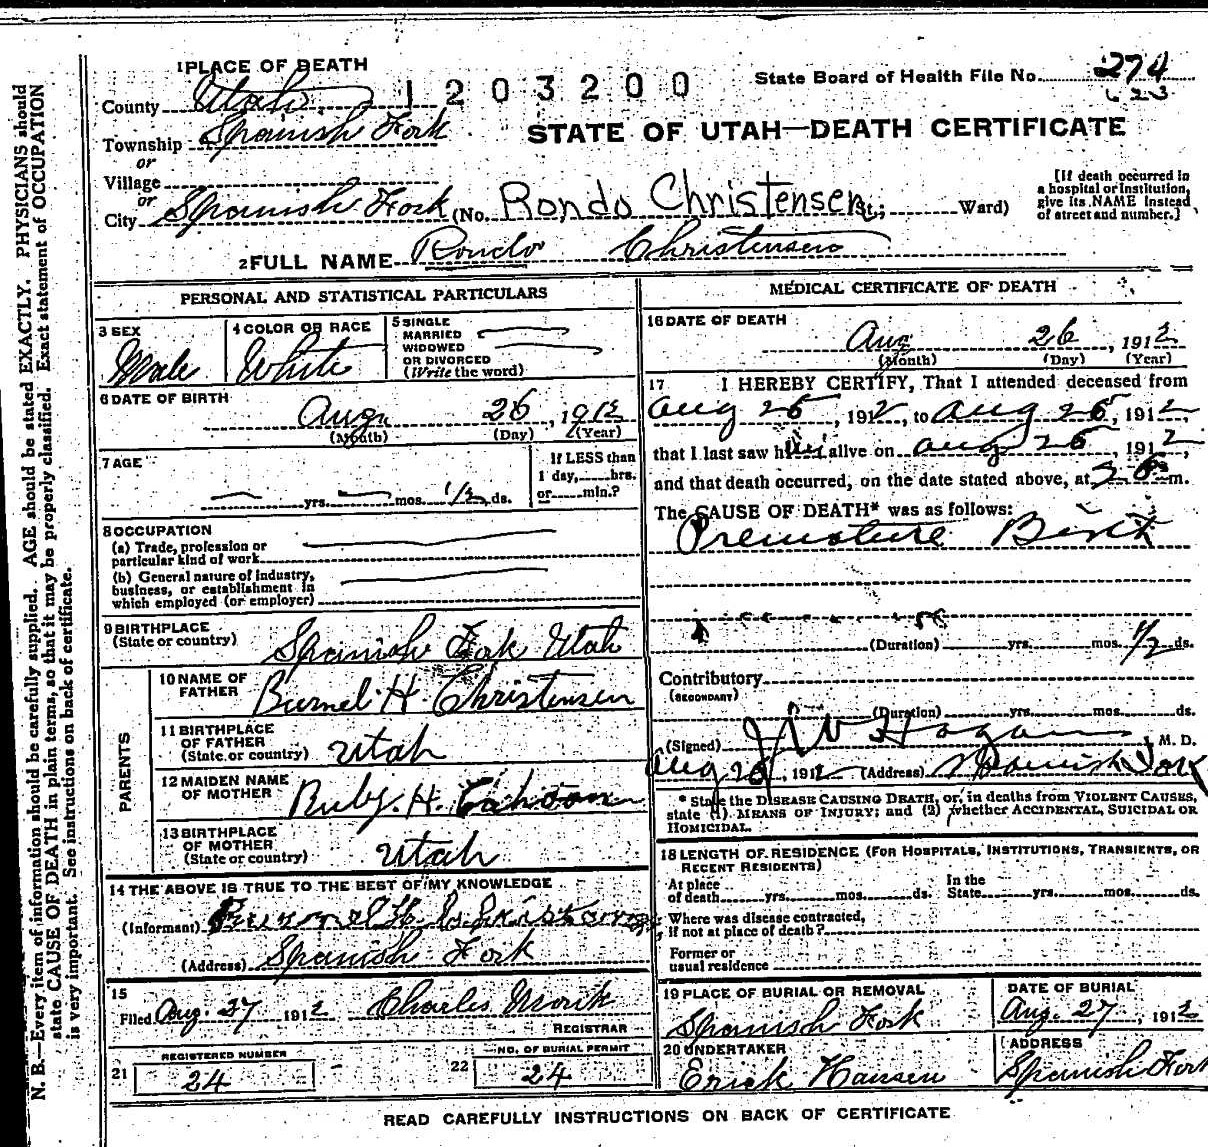 1 PLACE OF DEATH
County Utah
1203200
State Board of Health File No. 274
623
Township Spanish Fork
STATE OF UTAH—DEATH CERTIFICATE
or
Village
or
City Spanish Fork (No. Rondo Christensen St.; Ward)
[If death occurred in
a hospital or institution,
give its NAME instead
of street and number.]
2 FULL NAME Rondo Christensen
PERSONAL AND STATISTICAL PARTICULARS
3 SEX
Male
4 COLOR OR RACE
White
5 SINGLE
MARRIED
WIDOWED
OR DIVORCED
(Write the word)
6 DATE OF BIRTH
Aug 26, 1912
(Month) (Day) (Year)
7 AGE
yrs. mos. 1/2 ds.
If LESS than
1 day, hrs.
or min.?
8 OCCUPATION
(a) Trade, profession or
particular kind of work
(b) General nature of industry,
business, or establishment in
which employed (or employer)
9 BIRTHPLACE
(State or country) Spanish Fork Utah
PARENTS
10 NAME OF
FATHER Burnel H Christensen
11 BIRTHPLACE
OF FATHER
(State or country) Utah
12 MAIDEN NAME
OF MOTHER Ruby H. Cahoon
13 BIRTHPLACE
OF MOTHER
(State or country) Utah
14 THE ABOVE IS TRUE TO THE BEST OF MY KNOWLEDGE
(Informant) H. Christensen
(Address) Spanish Fork
15
Filed Aug. 27 1912 Charles Monk
REGISTRAR
21 REGISTERED NUMBER
24
22 NO. OF BURIAL PERMIT
24
MEDICAL CERTIFICATE OF DEATH
16 DATE OF DEATH
Aug 26, 1912
(Month) (Day) (Year)
17 I HEREBY CERTIFY, That I attended deceased from
Aug 26, 1912, to Aug 26, 1912,
that I last saw him alive on Aug 26, 1912,
and that death occurred, on the date stated above, at m.
The CAUSE OF DEATH* was as follows:
Premature Birth
(Duration) yrs. mos. 1/2 ds.
Contributory
(SECONDARY)
(Duration) yrs. mos. ds.
(Signed) J W Hagan, M. D.
Aug 26, 1912 (Address) Spanish Fork
* State the DISEASE CAUSING DEATH, or, in deaths from VIOLENT CAUSES,
state (1) MEANS OF INJURY; and (2) whether ACCIDENTAL, SUICIDAL OR
HOMICIDAL.
18 LENGTH OF RESIDENCE (FOR HOSPITALS, INSTITUTIONS, TRANSIENTS, OR
RECENT RESIDENTS)
At place
of death yrs. mos. ds.
In the
State yrs. mos. ds.
Where was disease contracted,
if not at place of death?
Former or
usual residence
19 PLACE OF BURIAL OR REMOVAL
Spanish Fork
DATE OF BURIAL
Aug. 27, 1912
20 UNDERTAKER
Erick Hansen
ADDRESS
Spanish Fork
READ CAREFULLY INSTRUCTIONS ON BACK OF CERTIFICATE
N. B.—Every item of information should be carefully supplied. AGE should be stated EXACTLY. PHYSICIANS should
state CAUSE OF DEATH in plain terms, so that it may be properly classified. Exact statement of OCCUPATION
is very important. See instructions on back of certificate.